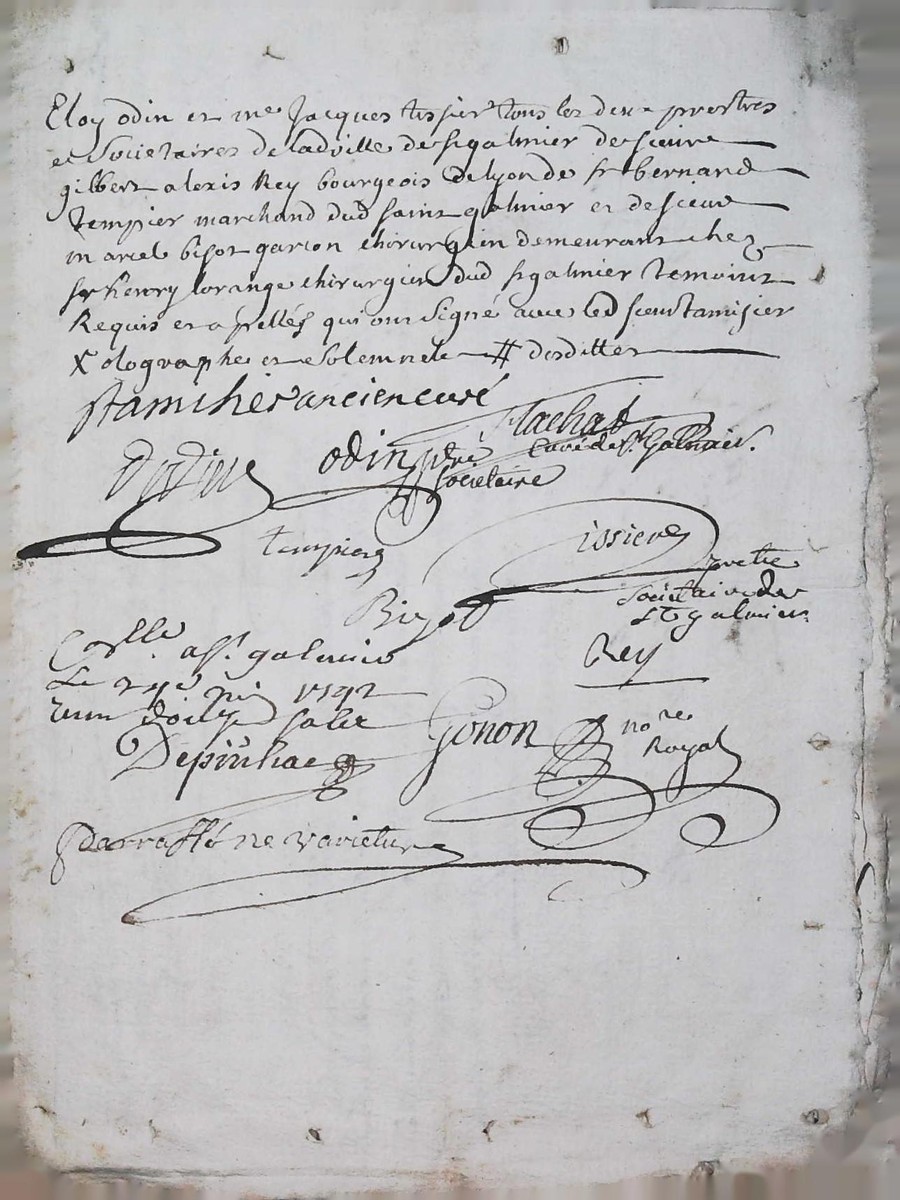 Eloy odin et me Jacques tissier tous les deux prestres
et Societaires de ladville de st galmier de sieure
gilbert alexis Rey bourgeois de lyon de sr bernard
tempier marchand dud saint galmier et de sieur
marcel bisot garcon chirurgien demeurant chez
sr henry lorange chirurgien dud st galmier temoins
Requis et apellés qui ont signé avec led sieur tamisier
X olographe et solemnele # desdittes
ancien curé
flachat
curé de st Galmier.
odin
Societaire
tempier
issier
pretre
Societaire de
st galmier
Bizot
a st. galmier
Rey
Le
Gonon no re
Royal
Depinhac
ne varietur